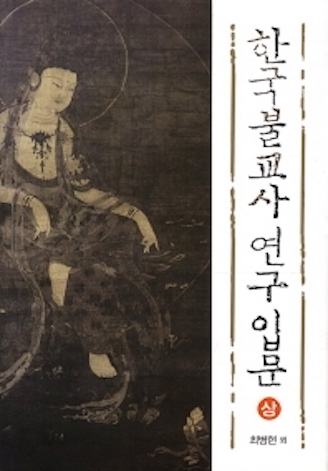 한국불교사 연구입문
상
최병헌 외